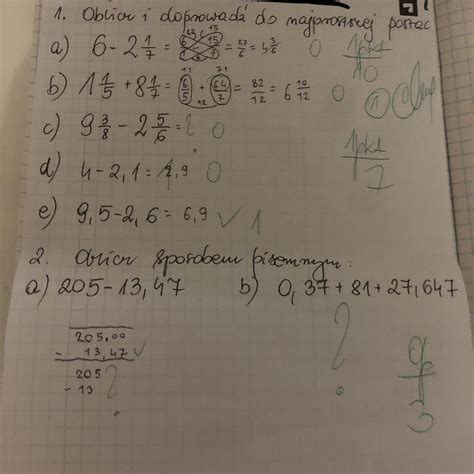 1. Oblicz i doprowadź do najprostszej postaci
a) 6 - 2 1/7 = = 27/6 = 4 3/6 0 1pkt/10
b) 1 1/5 + 8 1/7 = 6/5 + 64/7 = 82/12 = 6 10/12 0 1
c) 9 3/8 - 2 5/6 = ? 0
d) 4 - 2,1 = 1,9 0 1pkt/7
e) 9,5 - 2,6 = 6,9 ✓ 1
2. Oblicz sposobem pisemnym:
a) 205 - 13,47 b) 0,37 + 81 + 27,647
205,00
- 13,47 ✓
205
- 13 ?
? 0/3